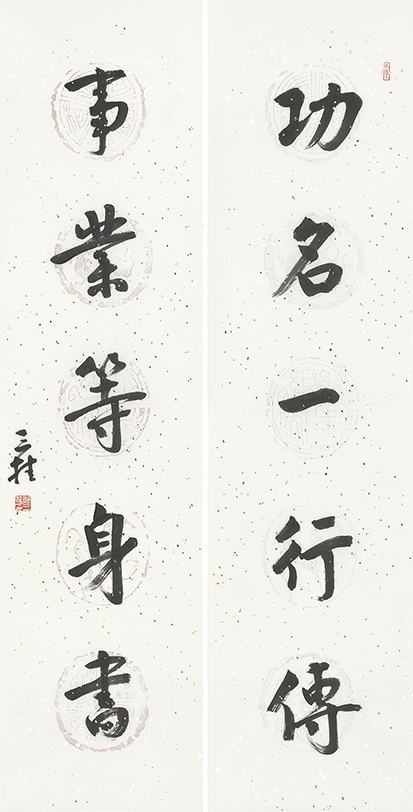 功名一行傳
事業等身書